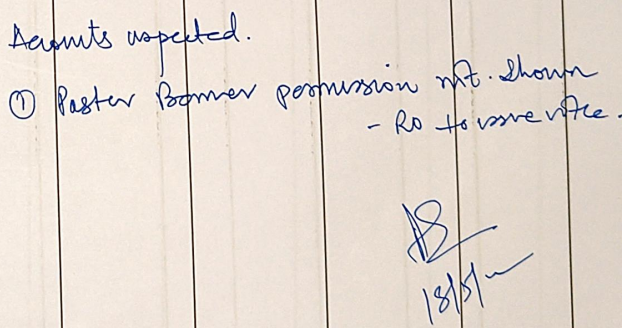 Accounts inspected.
① Paster Banner permission not. Shown
- RO to issue notice.
18/5/